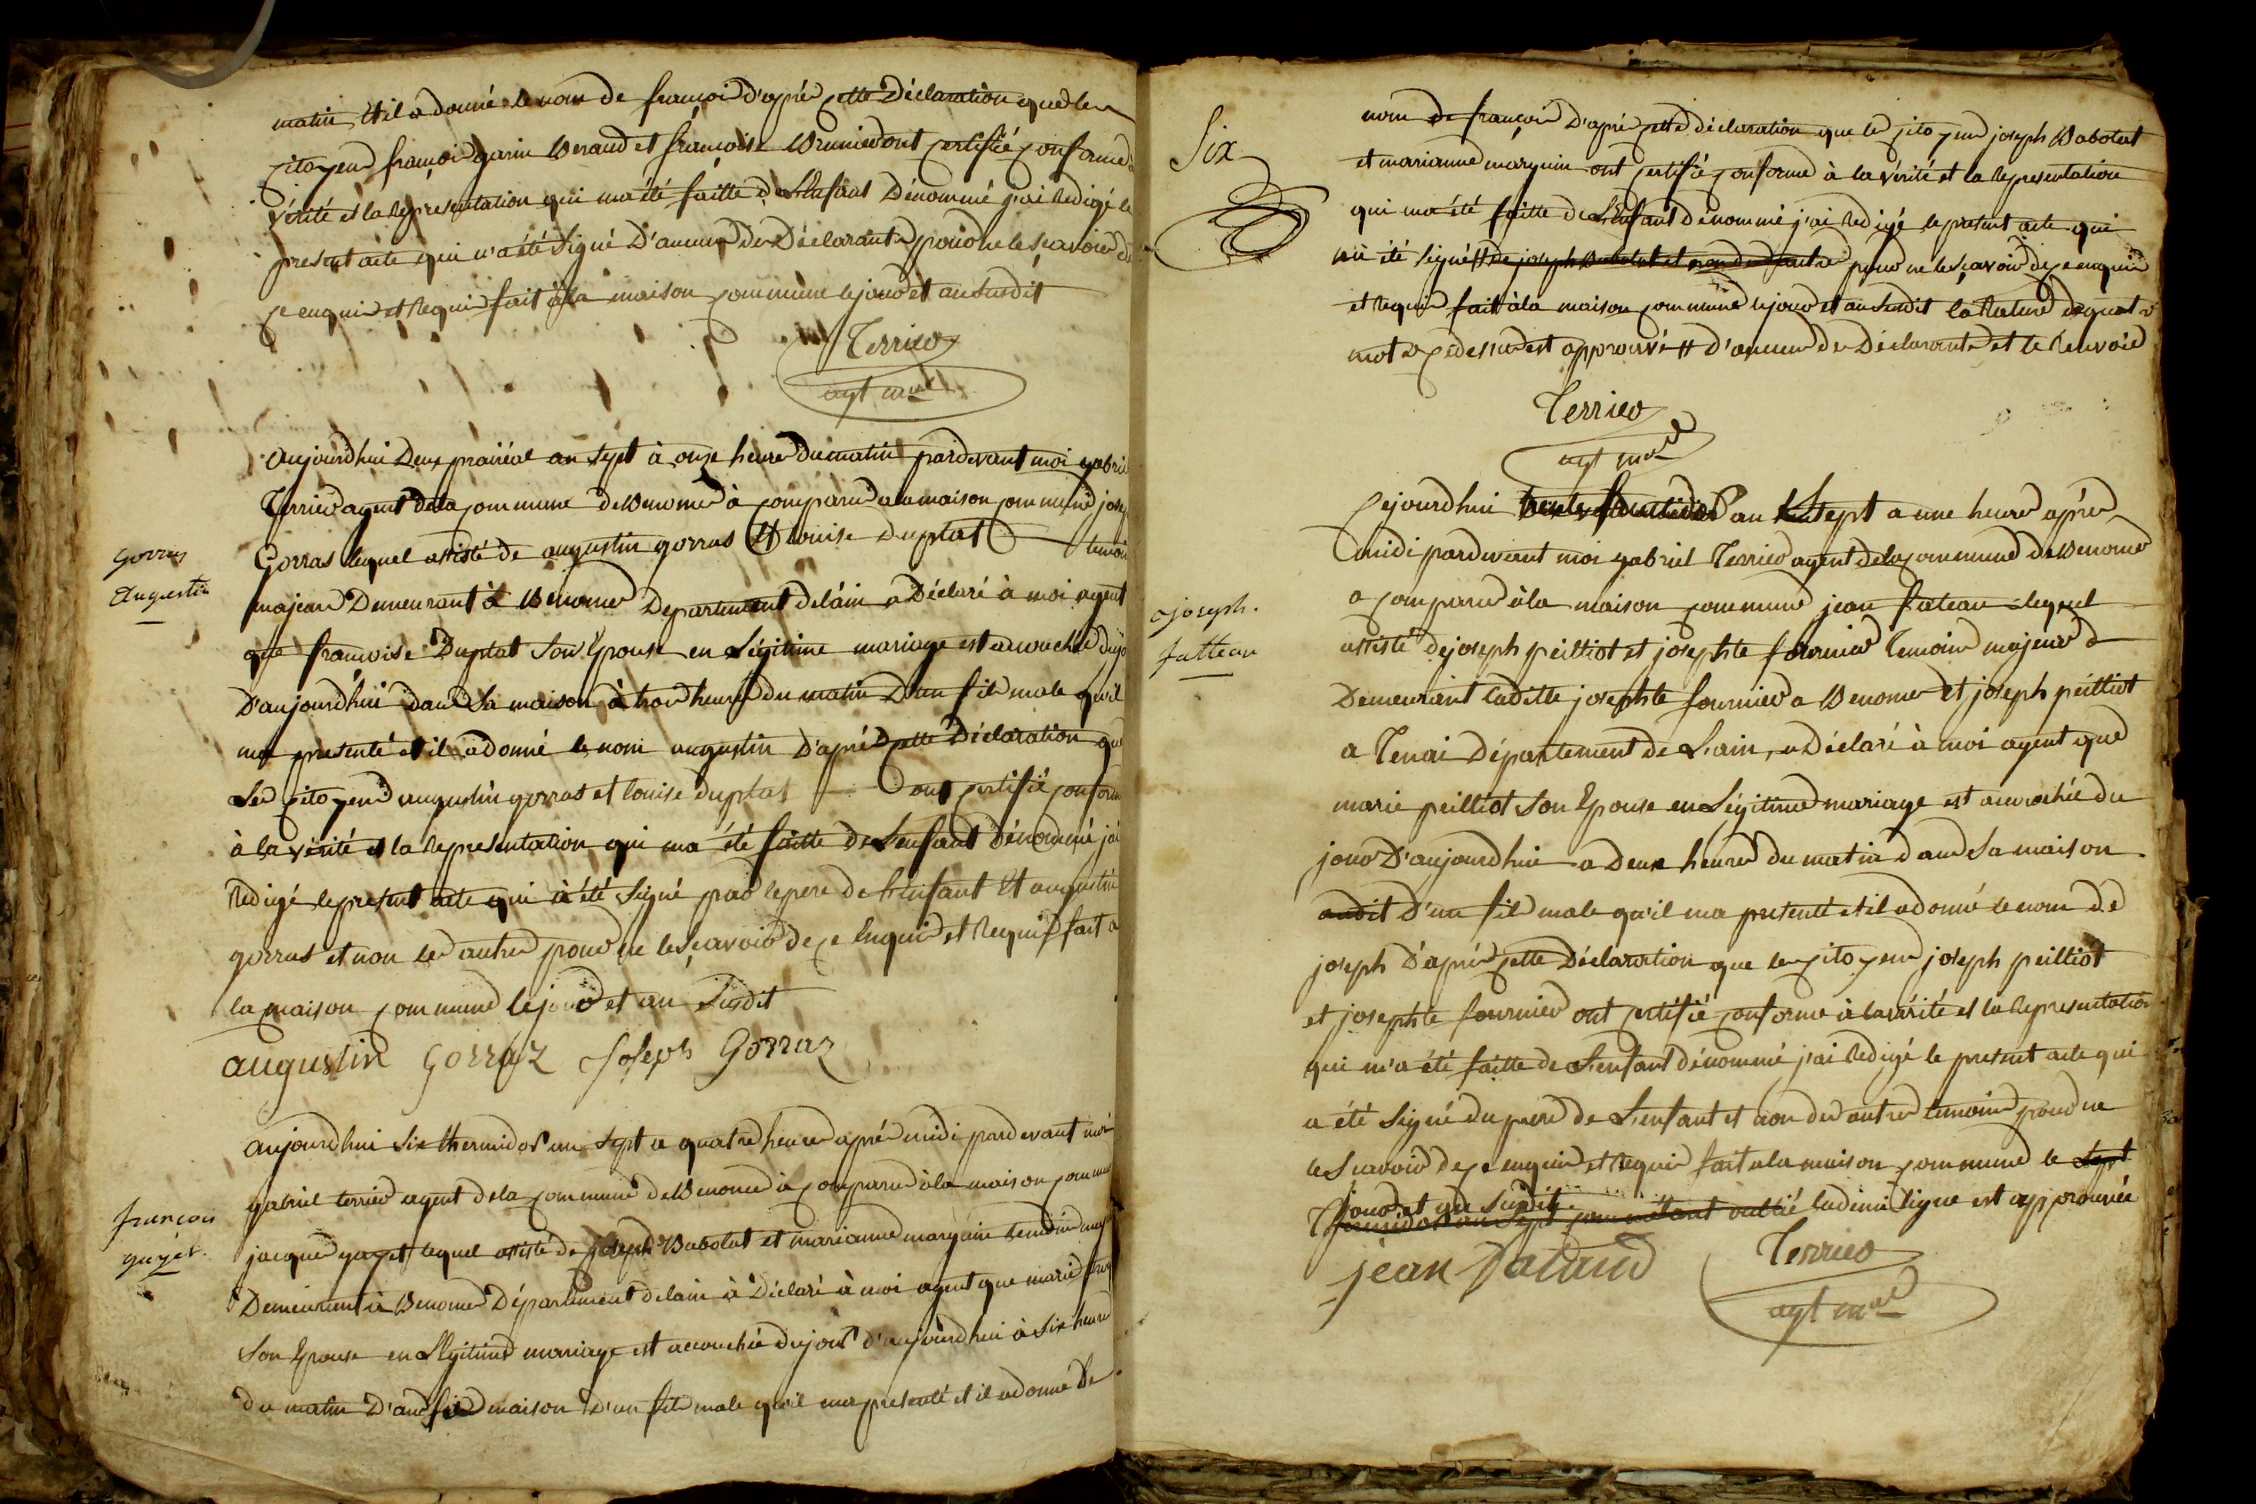 matin et il a donné le nom de françois d'après cette Déclaration que les
citoyens françois garin Benaud et françoise Brunier ont certifié conforme à
vérité et la représentation qui ma été faitte de L'enfant Dénommé j'ai Redigé le
present acte qui n'a été Signé D'aucun des Déclarants pour ne le scavoir de
ce enquis et Requis fait à la maison commune le jour et an Susdit
Terrier
agt mal
Gorras
Augustin
Aujourd'hui Deux prairéal an sept à onze heure du matin pardevant moi gabriel
Terrier agent de la commune de Benonce à comparu a la maison commune josep
Gorras lequel assisté de augustin gorras et Louise Duplat temoin
majeurs Demeurant à Benonce Departement de lain a Déclaré à moi agent
que françoise Duplat Son Epouse en Légitime mariage est accouchée du jo
D'aujourd'hui dans Sa maison à trois heures du matin D'un fils male qu'il
ma presenté et il a donné le nom augustin D'après cette Déclaration que
Les citoyens augustin gorras et louise duplat ont certifié conforme
à la vérité et la representation qui ma été faitte de L'enfant dénommé j'ai
Redigé le present acte qui à été Signé par le pere de L'enfant Et augustin
gorras et non les autres pour ne le scavoir de ce Enquis et Requis fait a
la maison commune le jour et an Susdit
augustin Gorraz Joseph Gorraz
françois
guyet
aujourd'hui Six thermidor an sept a quatre heures après midi pardevant moi
gabriel terrier agent de la commune de Benonce à comparu à la maison commune
jacque guyet lequel assisté de joseph Babolat et marianne marguin temoins maje
Demeurant à Benonce Département de lain à Déclaré à moi agent que marie
Son Epouse en Légitime mariage est accouchée du jour d'aujourd'hui à Six heures
du matin D'ans Sa maison D'un fils male qu'il ma presenté et il a donné le
Six
nom de françois D'après cette déclaration que les citoyens joseph Babolat
et marianne marguin ont certifié conforme à la vérité et la Representation
qui ma été faitte de L'enfant dénommé j'ai Redigé le present acte qui
n'a été signé # de joseph Babolat et non des autres pour ne le scavoir de ce enquis
et Requis fait à la maison commune le jour et an Susdit la Rature de quatre
mots cidessus est approuvé # d'aucun des Déclarants et le Renvoié
Terrier
agt mal
joseph
futteau
Cejourdhui trente fructidor an Sept a une heure après
midi pardevant moi gabriel Terrier agent de la commune de Benonce
a comparu à la maison commune jean fateau lequel
assisté de joseph peilliot et josephte fournier Temoins majeurs
Demeurant laditte josephte fournier a Benonce Et joseph peilliot
a Tenai Département de L'ain, a Déclaré à moi agent que
marie peilliot Son Epouse en Légitime mariage est accouchée du
jour D'aujourd'hui a Deux heures du matin dans Sa maison
audit D'un fils male qu'il ma presenté et il a donné le nom de
joseph D'après cette Déclaration que les citoyens joseph peilliot
et josephte fournier ont certifié conforme à la vérité et la Representation
qui m'a été faitte de L'enfant dénommé j'ai Redigé le present acte qui
a été Signé du pere de L'enfant et non des autres temoins pour ne
le Scavoir de ce enquis et Requis fait a la maison commune le Sept
jour et an Susdit.
an Sept ligne est approuvée
Terrier
agt mal